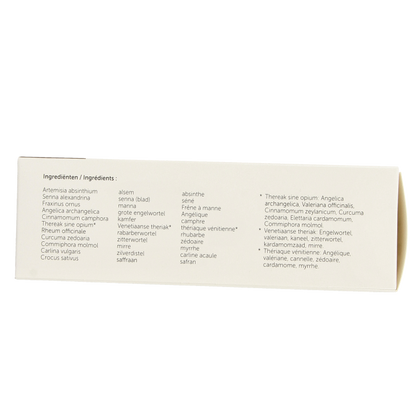 Ingrediënten / Ingrédients :
Artemisia absinthium
Senna alexandrina
Fraxinus ornus
Angelica archangelica
Cinnamomum camphora
Thereak sine opium*
Rheum officinale
Curcuma zedoaria
Commiphora molmol
Carlina vulgaris
Crocus sativus
alsem
senna (blad)
manna
grote engelwortel
kamfer
Venetiaanse theriak*
rabarberwortel
zitterwortel
mirre
zilverdistel
saffraan
absinthe
séné
Frêne à manne
Angélique
camphre
thériaque vénitienne*
rhubarbe
zédoaire
myrrhe
carline acaule
safran
* Thereak sine opium: Angelica
archangelica, Valeriana officinalis,
Cinnamomum zeylanicum, Curcuma
zedoaria, Elettaria cardamomum,
Commiphora molmol
* Venetiaanse theriak: Engelwortel,
valeriaan, kaneel, zitterwortel,
kardamomzaad, mirre.
* Thériaque vénitienne: Angélique,
valériane, cannelle, zédoaire,
cardamome, myrrhe.